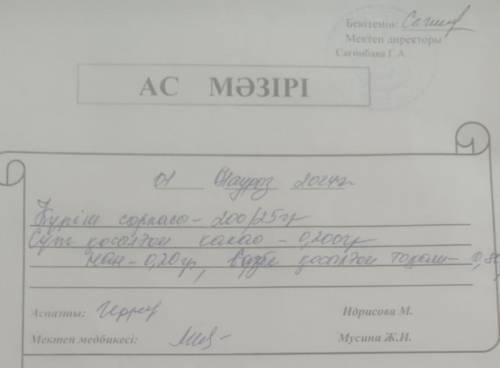 Бекітемін:
Мектеп директоры
Сагинбаева Г.А.
АС МӘЗІРІ
01 Наурыз 2024г
Күріш сорпасы - 200/25гр
Сүт қосылған какао - 0,200гр
нан - 0,20гр, қосылған тоқаш - 0,80
Аспазшы: Идрисова М.
Мектеп медбикесі: Мусина Ж.Н.